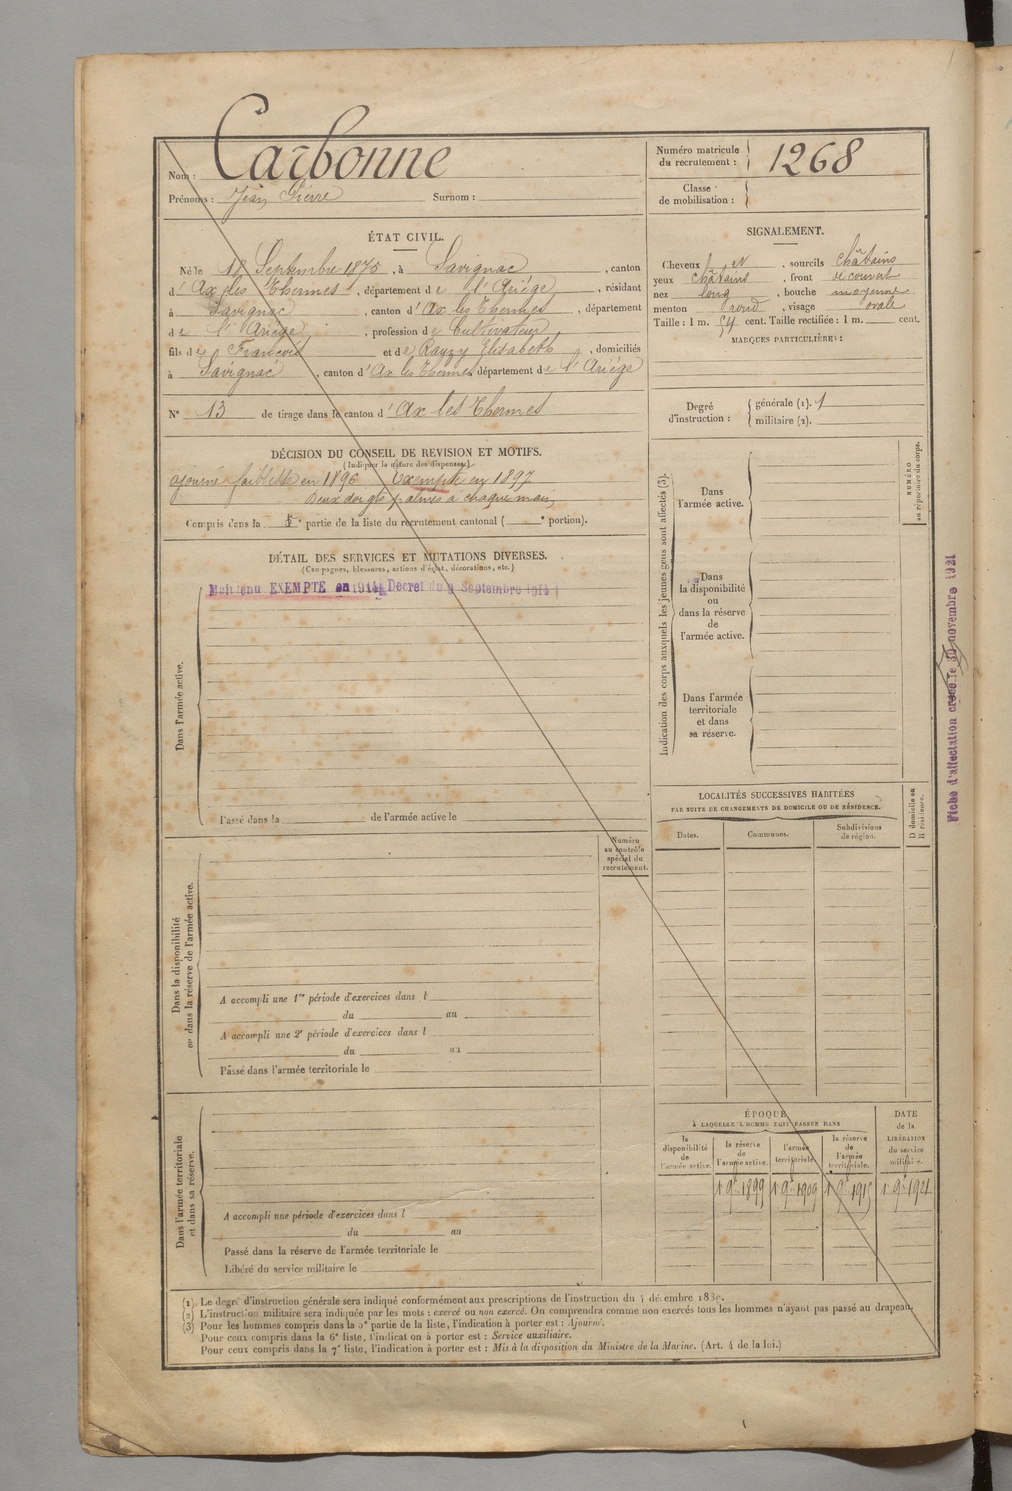 Nom : Carbonne
Prénoms : Jean Pierre Surnom :
Numéro matricule du recrutement : 1268
Classe de mobilisation :
ÉTAT CIVIL.
Né le 18 Septembre 1875, à Savignac, canton
d'Ax les Thermes, département de l'Ariège, résidant
à Savignac, canton d'Ax les Thermes, département
de l'Ariège, profession de Cultivateur
fils de François et de Rauzy Elisabeth, domiciliés
à Savignac, canton d'Ax les Thermes département de l'Ariége
N° 13 de tirage dans le canton d'Ax les Thermes
SIGNALEMENT.
Cheveux N, sourcils châtains
yeux châtains, front découvert
nez long, bouche moyenne
menton rond, visage ovale
Taille : 1 m. 54 cent. Taille rectifiée : 1 m. cent.
MARQUES PARTICULIÈRES :
Degré d'instruction : générale (1). 1
militaire (2).
DÉCISION DU CONSEIL DE REVISION ET MOTIFS.
(Indiquer la nature des dispenses.)
ajourné faiblesse en 1896 Exempté en 1897
Deux doigts palmés à chaque main
Compris dans la 5e partie de la liste du recrutement cantonal ( e portion).
DÉTAIL DES SERVICES ET MUTATIONS DIVERSES.
(Campagnes, blessures, actions d'éclat, décorations, etc.)
Maintenu EXEMPTE en 1914 Décret du 9 Septembre 1914
Dans l'armée active.
Passé dans la de l'armée active le
Dans la disponibilité
ou dans la réserve de l'armée active.
Numéro
au contrôle
spécial du
recrutement.
A accompli une 1re période d'exercices dans l
du au
A accompli une 2e période d'exercices dans l
du au
Passé dans l'armée territoriale le
Dans l'armée territoriale
et dans sa réserve.
A accompli une période d'exercices dans l
du au
Passé dans la réserve de l'armée territoriale le
Libéré du service militaire le
Indication des corps auxquels les jeunes gens sont affectés (3).
Dans
l'armée active.
Dans
la disponibilité
ou
dans la réserve
de
l'armée active.
Dans l'armée
territoriale
et dans
sa réserve.
NUMÉRO
au répertoire du corps.
LOCALITÉS SUCCESSIVES HABITÉES
PAR SUITE DE CHANGEMENTS DE DOMICILE OU DE RÉSIDENCE.
Dates. Communes. Subdivisions de région.
D domicile ou
R résidence.
ÉPOQUE
À LAQUELLE L'HOMME DOIT PASSER DANS
DATE de la LIBÉRATION du service militaire.
la disponibilité de l'armée active.
la réserve de l'armée active.
l'armée territoriale.
la réserve de l'armée territoriale.
1 9bre 1899 1 9bre 1909 1 9bre 1915 1 9bre 1921
Fiche d'affectation créée le 30 novembre 1921
(1) Le degré d'instruction générale sera indiqué conformément aux prescriptions de l'instruction du 4 décembre 1889.
(2) L'instruction militaire sera indiquée par les mots : exercé ou non exercé. On comprendra comme non exercés tous les hommes n'ayant pas passé au drapeau.
(3) Pour les hommes compris dans la 5e partie de la liste, l'indication à porter est : Ajourné.
Pour ceux compris dans la 6e liste, l'indication à porter est : Service auxiliaire.
Pour ceux compris dans la 7e liste, l'indication à porter est : Mis à la disposition du Ministre de la Marine. (Art. 4 de la loi.)